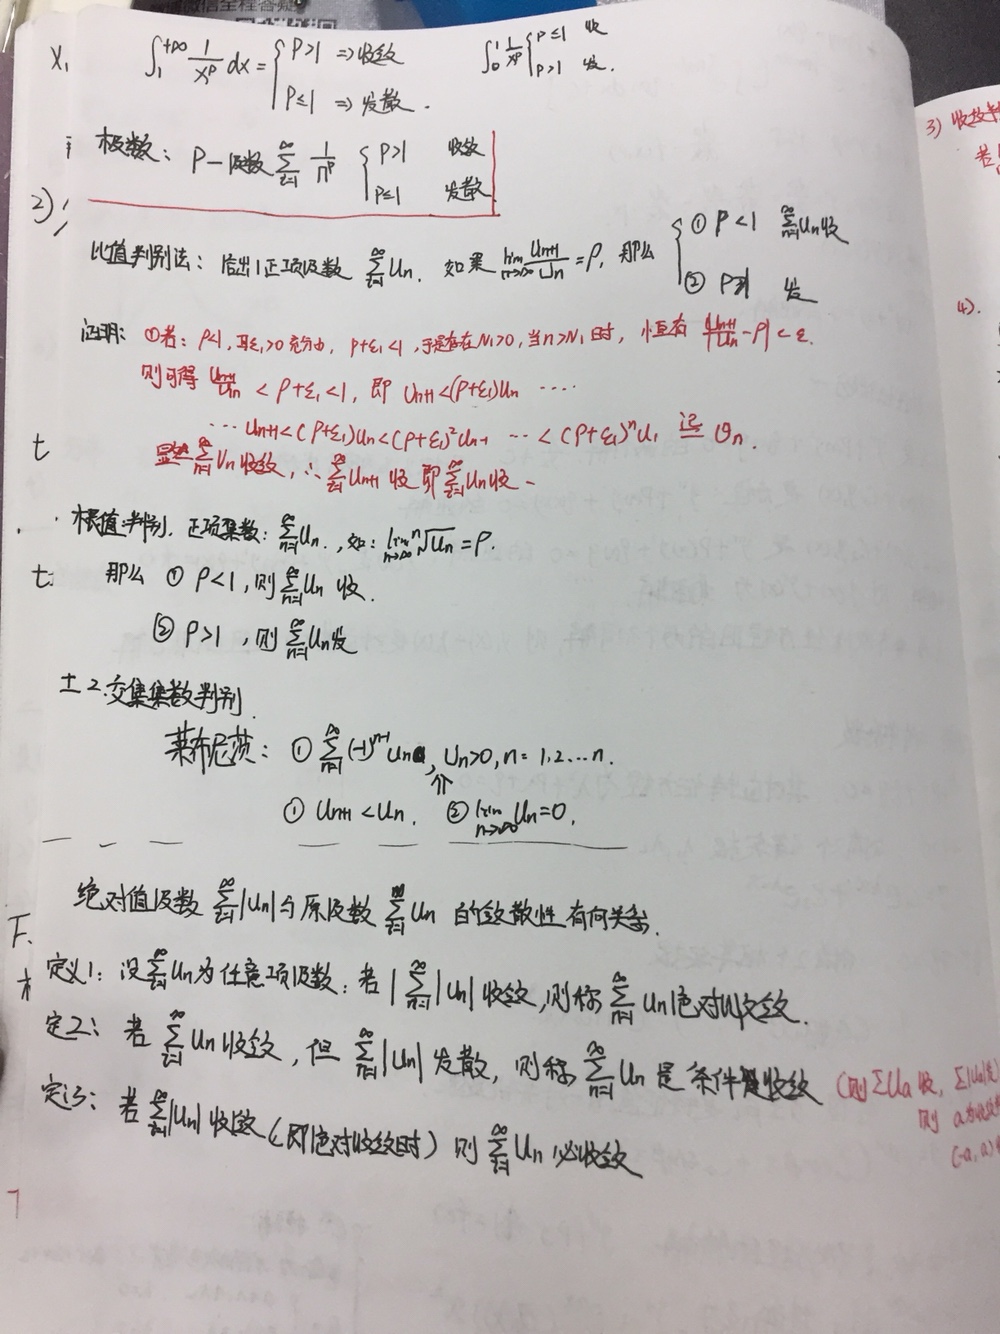 ∫₁^{+∞} 1/x^p dx = { p>1 ⇒ 收敛 ∫₀¹ 1/x^p { p≤1 收
p≤1 ⇒ 发散. p>1 发.
极数: P-级数 ∑_{i=1}^∞ 1/n^p { p>1 收敛
p≤1 发散
2)
比值判别法: 给出1正项级数 ∑_{i=1}^∞ Un. 如果 lim_{n→∞} U_{n+1}/Un = ρ, 那么 { ① ρ<1 ∑_{n=1}^∞ Un收
② ρ>1 发
证明: ①若: ρ<1, 取ε₁>0 充分小, ρ+ε₁<1, 于是存在N₁>0, 当n>N₁时, 恒有 |U_{n+1}/Un - ρ| < ε.
则可得 U_{n+1}/Un < ρ+ε₁<1, 即 U_{n+1}<(ρ+ε₁)Un ····
··· U_{n+1}<(ρ+ε₁)Un<(ρ+ε₁)²U_{n-1} ··· <(ρ+ε₁)ⁿU₁ 记= υn.
显然 ∑_{n=1}^∞ Vn 收敛, ∴ ∑_{i=1}^∞ U_{n+1} 收 即 ∑_{i=1}^∞ Un收
根值判别. 正项集数: ∑_{n=1}^∞ Un., 如: lim_{n→∞} ⁿ√Un = ρ.
那么 ① ρ<1, 则 ∑_{n=1}^∞ Un 收.
② ρ>1, 则 ∑_{n=1}^∞ Un发
2.交集集数判别.
莱布尼茨: ① ∑_{n=1}^∞ (-1)^{n-1} Un, Un>0, n=1.2...n.
⇑
① U_{n+1} < Un. ② lim_{n→∞} Un=0.
绝对值级数 ∑_{i=1}^∞ |Un| 与原级数 ∑_{i=1}^∞ Un 的敛散性有何关系.
定义1: 设 ∑_{n=1}^∞ Un为任意项级数: 若 |∑_{n=1}^∞ |Un| 收敛, 则称 ∑_{n=1}^∞ Un绝对收敛.
定2: 若 ∑_{i=1}^∞ Un 收敛, 但 ∑_{n=1}^∞ |Un| 发散, 则称 ∑_{n=1}^∞ Un 是条件收敛 (则∑Ua 收,
定3: 若 ∑_{i=1}^∞ |Un| 收敛 (即绝对收敛时) 则 ∑_{i=1}^∞ Un 必收敛
则 a
(-a, a)
3)
若
(4).